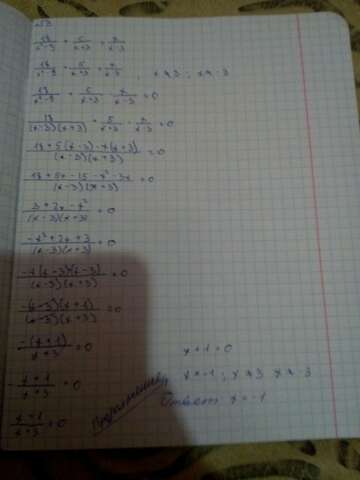 18/(x²-9) + 5/(x+3) = x/(x-3)
18/(x²-9) + 5/(x+3) = x/(x-3) ; x≠3 ; x≠-3
18/(x²-9) + 5/(x+3) - x/(x-3) = 0
18/((x-3)(x+3)) + 5/(x+3) - x/(x-3) = 0
(18+5(x-3)-x(x+3))/((x-3)(x+3)) = 0
(18+5x-15-x²-3x)/((x-3)(x+3)) = 0
(3+2x-x²)/((x-3)(x+3)) = 0
(-x²+2x+3)/((x-3)(x+3)) = 0
(-x(x-3)-(x-3))/((x-3)(x+3)) = 0
(-(x-3)(x+1))/((x-3)(x+3)) = 0
(-(x+1))/(x+3) = 0
-(x+1)/(x+3) = 0
(x+1)/(x+3) = 0
Продолжение
x+1=0
x=-1 ; x≠3 x≠-3
Ответ x=-1